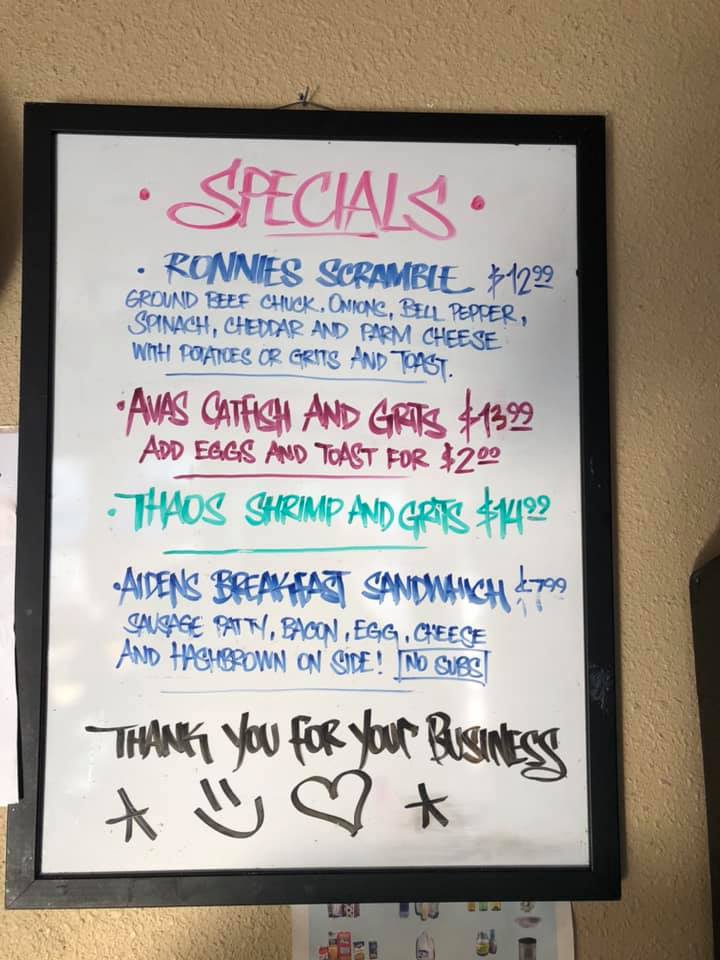 • SPECIALS •
• RONNIES SCRAMBLE $12.99
GROUND BEEF CHUCK, ONIONS, BELL PEPPER,
SPINACH, CHEDDAR AND PARM CHEESE
WITH POTATOES OR GRITS AND TOAST.
• AVAS CATFISH AND GRITS $13.99
ADD EGGS AND TOAST FOR $2.00
• THAOS SHRIMP AND GRITS $14.99
• AIDENS BREAKFAST SANDWHICH $7.99
SAUSAGE PATTY, BACON, EGG, CHEESE
AND HASHBROWN ON SIDE! NO SUBS
THANK YOU FOR YOUR BUSINESS